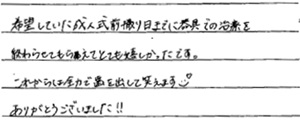 希望していた成人式前撮り日までに器具での治療を
終わらせてもらえてとても嬉しかったです。
これからは全力で歯を出して笑えます
ありがとうございました!!